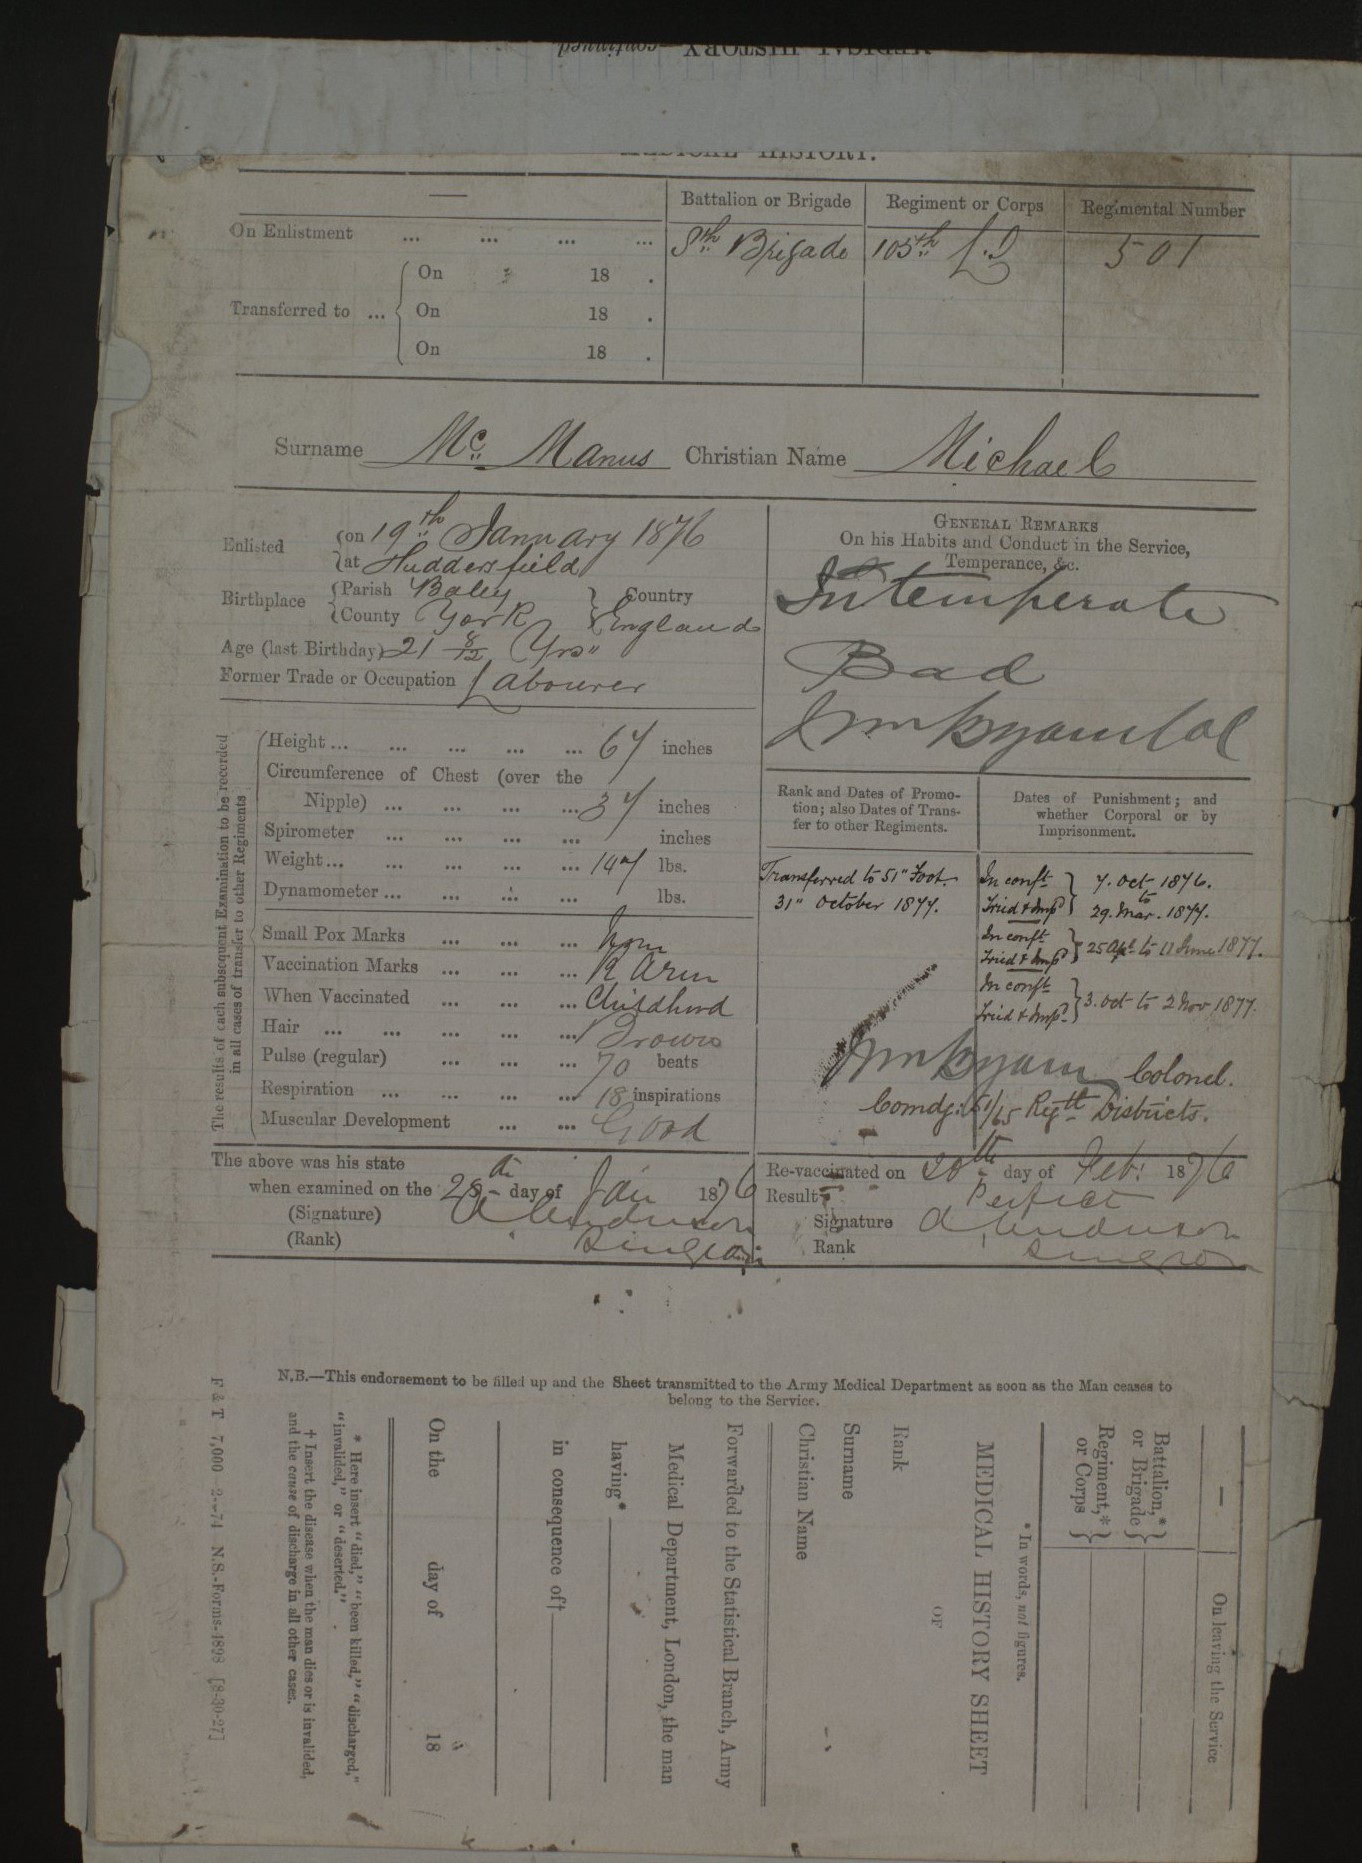 MEDICAL HISTORY—continued
MEDICAL HISTORY.
— Battalion or Brigade Regiment or Corps Regimental Number
On Enlistment ... ... ... ... 8th Brigade 105th L.I 501
On 18 .
Transferred to ... On 18 .
On 18 .
Surname Mc. Manus Christian Name Michael
Enlisted on 19th January 1876
at Huddersfield
Birthplace Parish Batley Country
County York England
Age (last Birthday) 21 8/12 Yrs"
Former Trade or Occupation Labourer
GENERAL REMARKS
On his Habits and Conduct in the Service,
Temperance, &c.
Intemperate
Bad
The results of each subsequent Examination to be recorded
in all cases of transfer to other Regiments
Height ... ... ... ... ... 67 inches
Circumference of Chest (over the
Nipple) ... ... ... ... 37 inches
Spirometer ... ... ... ... inches
Weight ... ... ... ... ... 147 lbs.
Dynamometer ... ... ... ... lbs.
Small Pox Marks ... ... ...
Vaccination Marks ... ... ... R Arm
When Vaccinated ... ... ... Childhood
Hair ... ... ... ... ... Brown
Pulse (regular) ... ... ... 70 beats
Respiration ... ... ... ... 18 inspirations
Muscular Development ... ... Good
Rank and Dates of Promo-
tion; also Dates of Trans-
fer to other Regiments.
Transferred to 51" Foot.
31" October 1877.
Dates of Punishment; and
whether Corporal or by
Imprisonment.
In conft 7. Oct 1876.
to
Tried & Imp'd 29. Mar. 1877.
In conft
Tried & Imp'd 25 Apl. to 11 June 1877.
In conft
Tried & Imp'd 3. Oct to 2 Nov 1877.
Colonel.
Comdg. 51/65 Regtl Districts.
The above was his state
when examined on the day of Jan 1876
(Signature) A Anderson
(Rank) Surgeon
Re-vaccinated on 28th day of Feb: 1876
Result Perfect
Signature A Anderson
Rank Surgeon
N.B.—This endorsement to be filled up and the Sheet transmitted to the Army Medical Department as soon as the Man ceases to
belong to the Service.
— On leaving the Service
Battalion,*
or Brigade
Regiment,*
or Corps
* In words, not figures.
MEDICAL HISTORY SHEET
OF
Rank
Surname
Christian Name
Forwarded to the Statistical Branch, Army
Medical Department, London, the man
having*
in consequence of†
On the day of 18
* Here insert "died," "been killed," "discharged,"
"invalided," or "deserted."
† Insert the disease when the man dies or is invalided,
and the cause of discharge in all other cases.
F & T 7,000 2-74 N.S.-Forms-1898 [8-30-27]